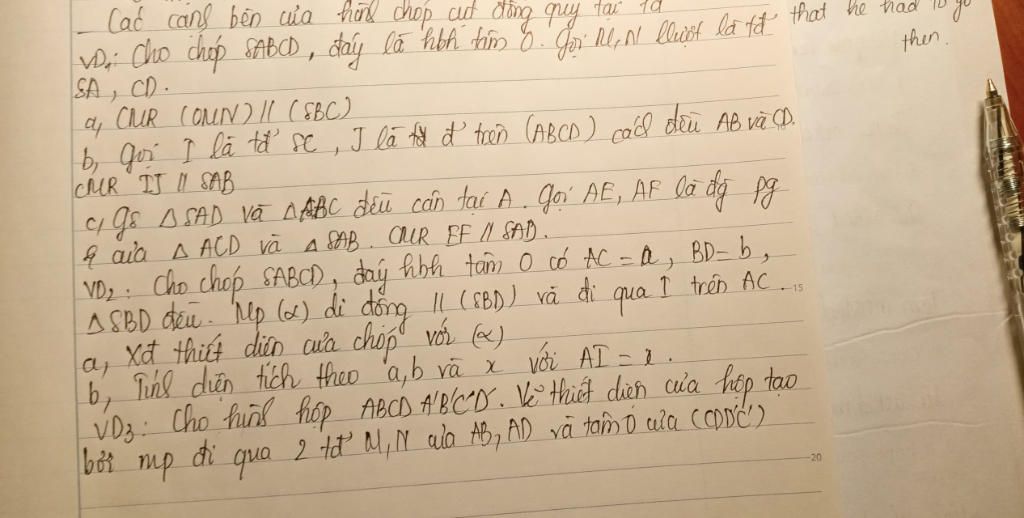 _ Các cạnh bên của hình chóp cụt đồng quy tại 1đ
that he had to go
VD1: Cho chóp SABCD, đáy là hbh tâm O. Gọi M,N lluợt là tđ
then.
SA, CD.
a, CMR (OMN) // (SBC)
b, gọi I là tđ SC, J là đ trên (ABCD) cách đều AB và CD.
CMR IJ // SAB
c, gs △SAD và △ABC đều cân tại A. Gọi AE, AF là đg pg
của △ACD và △SAB. CMR EF // SAD.
VD2: Cho chóp SABCD, đáy hbh tâm O có AC = a, BD = b,
△SBD đều. Mp (α) di động // (SBD) và đi qua I trên AC.
15
a, Xđ thiết diện của chóp với (α)
b, Tính diện tích theo a,b và x với AI = x.
VD3: Cho hình hộp ABCD A'B'C'D'. Vẽ thiết diện của hộp tạo
bởi mp đi qua 2 tđ M,N của AB, AD và tâm O của (CDD'C')
20